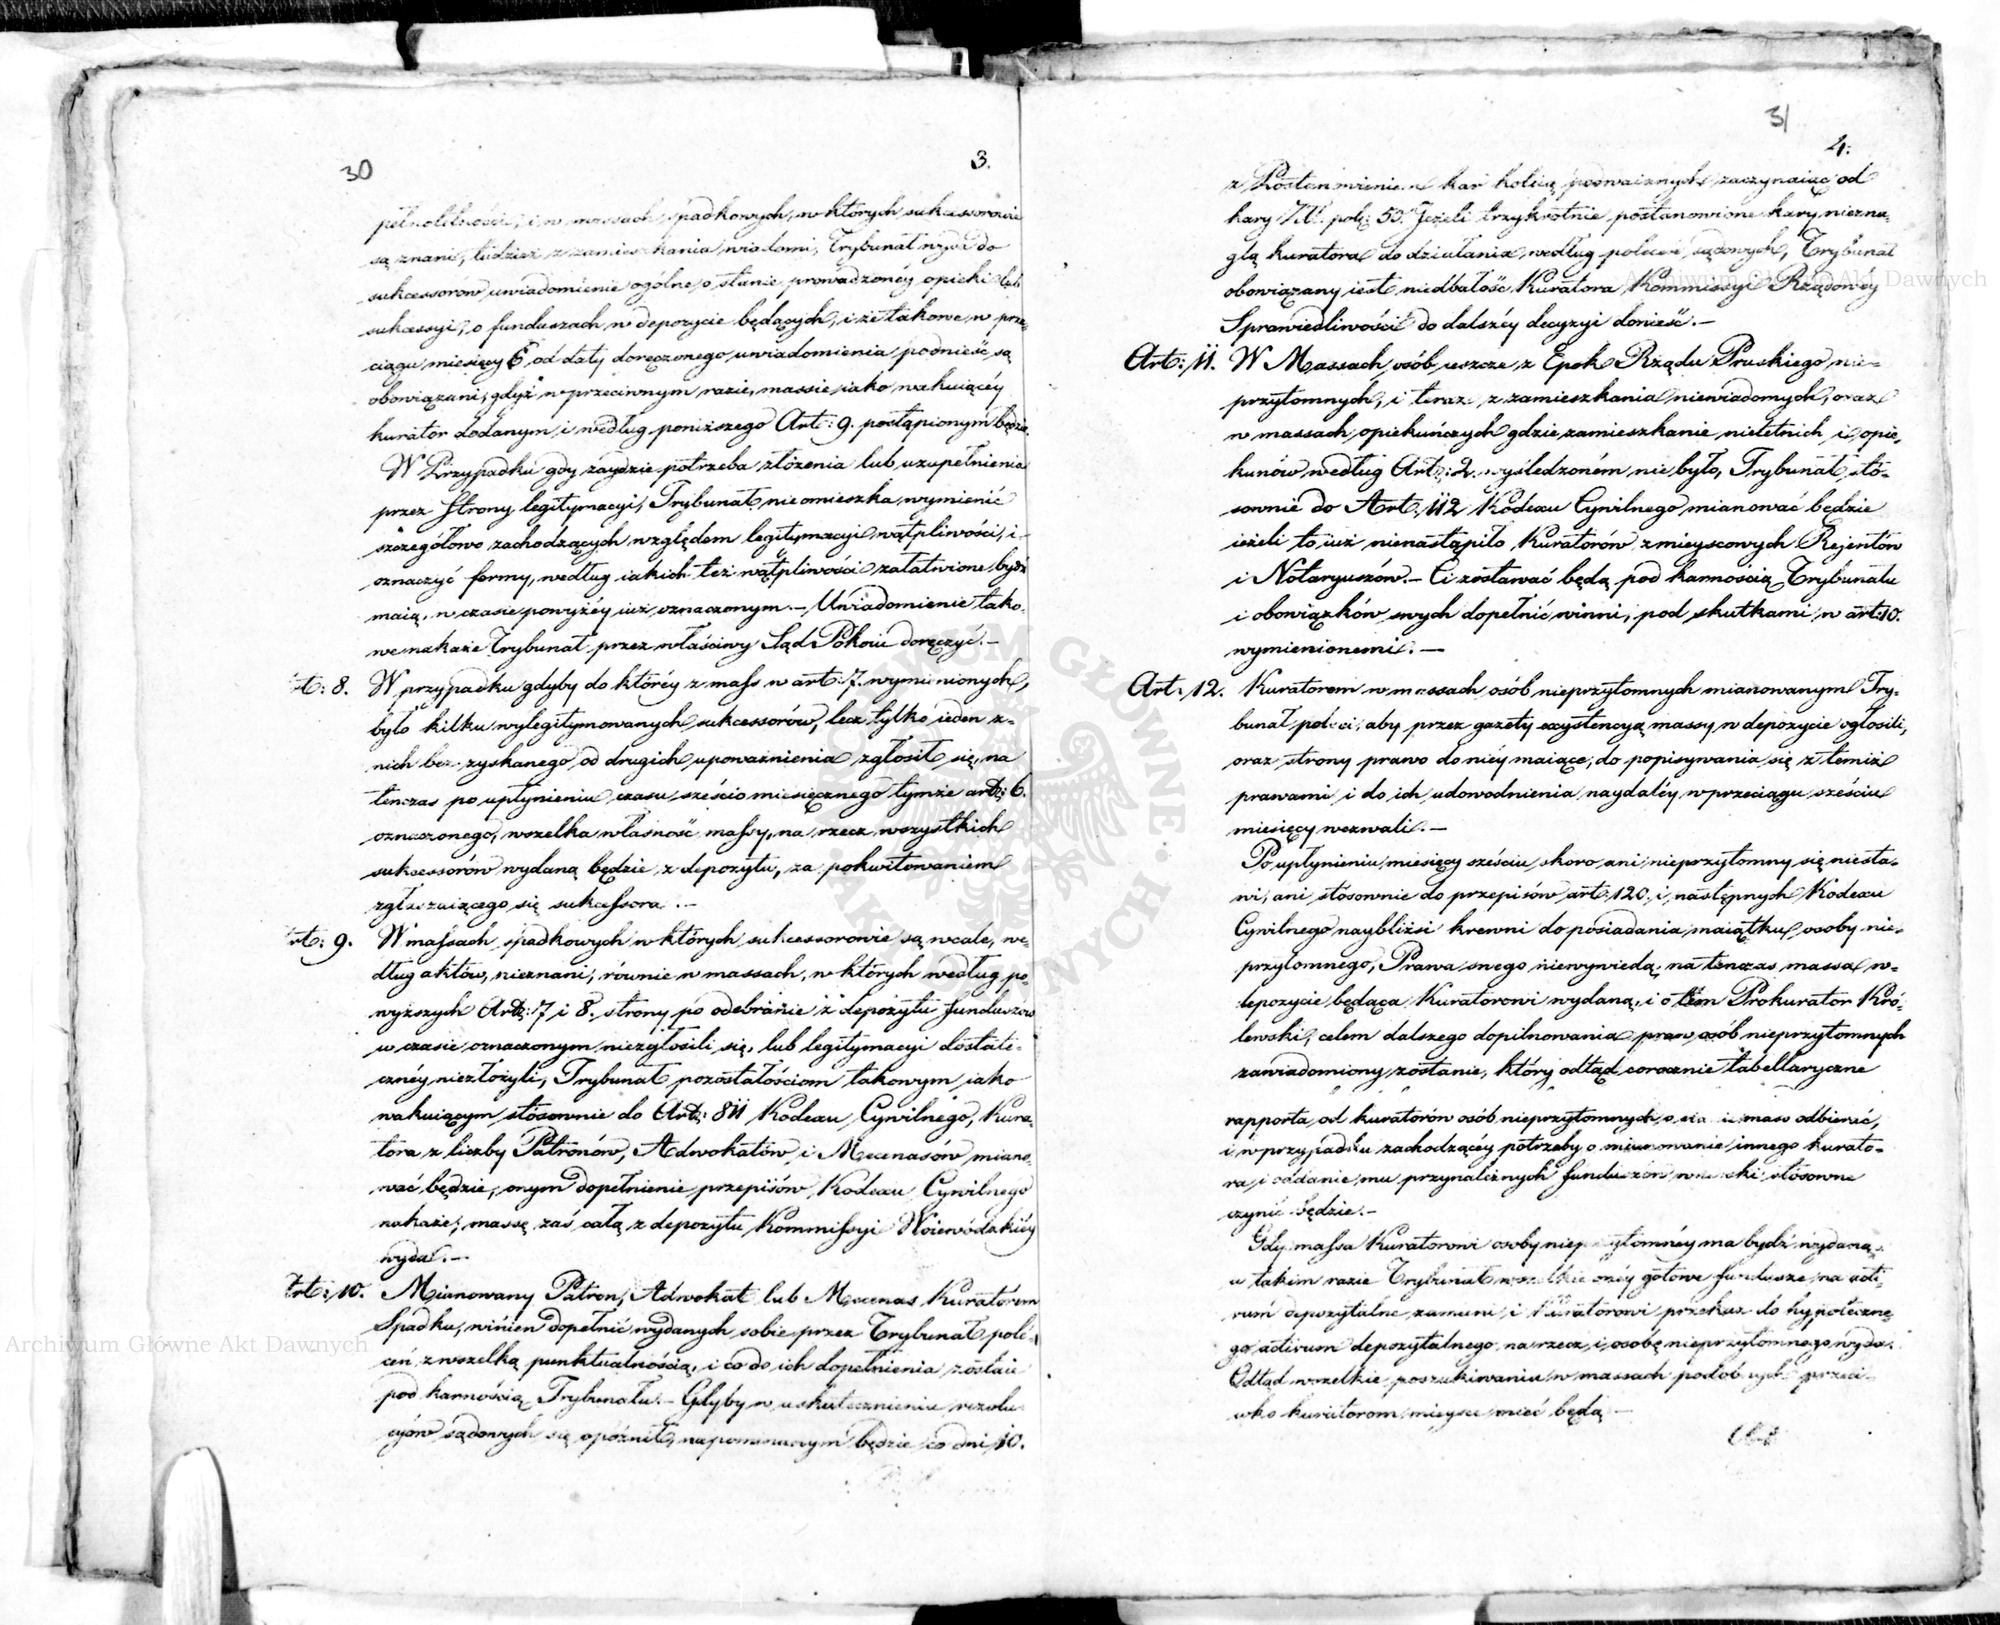 30
3.
pełnoletności, i w massach spadkowych, w których sukcessorowie
są znani, tudzież z zamieszkania wiadomi, Trybunał wyda do
sukcessorów uwiadomienie ogólne, o stanie prowadzonéy opieki lub
sukcessyi, o funduszach w depozycie będących, i że takowe w prze-
ciągu miesięcy 6 od daty doręczonego uwiadomienia podnieść są
obowiązani, gdyż w przeciwnym razie, massie iako wakuiącéy
kurator dodanym i według poniższego Art: 9. postąpionym będzie.
W Przypadku gdy zaydzie potrzeba złożenia lub uzupełnienia
przez Strony legitymacyi, Trybunał nie omieszka wymienić
szczegółowo zachodzących względem legitymacyi wątpliwości, i
oznaczyć formy, według iakich też wątpliwości załatwione bydź
maią, w czasie powyżéy iuż oznaczonym. – Uwiadomienie tako-
we nakaże Trybunał przez właściwy Sąd Pokoiu doręczyć. –
rt: 8. W przypadku gdyby do któréy z mass w art: 7. wymienionych,
było kilku wylegitymowanych sukcessorów, lecz tylko ieden z-
nich bez zyskanego od drugich upoważnienia zgłosił się, na
tenczas po upłynieniu czasu sześcio miesięcznego tymże art: 6.
oznaczonego, wszelka własność massy, na rzecz wszystkich
sukcessorów wydaną będzie z depozytu, za pokwitowaniem
zgłaszaiącego się sukcessora. –
rt: 9. W massach spadkowych w których sukcessorowie są wcale, we-
dług aktów, nieznani, równie w massach, w których według po-
wyższych Art: 7 i 8. strony po odebranie z depozytu funduszów
w czasie oznaczonym niezgłosili się, lub legitymacyi dostate-
cznéy niezłożyli, Trybunał pozostałościom takowym iako
wakuiącym stósownie do Art: 811 Kodexu Cywilnego, Kura-
tora z liczby Patronów, Adwokatów i Mecenasów miano-
wać będzie, onym dopełnienie przepisów Kodexu Cywilnego
nakaże, massę zaś całą z depozytu Kommissyi Woiewódzkiéy
wyda. –
Art: 10. Mianowany Patron, Adwokat lub Mecenas Kuratorem
Spadku, winien dopełnić wydanych sobie przez Trybunał pole-
ceń z wszelką punktualnością, i co do ich dopełnienia zostaie
pod karnością Trybunału. – Gdyby w uskutecznieniu rezolu-
cyów sądowych się opóźnił, napominanym będzie co dni 10.
31
4:
z Postanowieniem kar koleią podwaianych, zaczynaiąc od
kary Zł. pol: 50. Jeżeli trzykrotnie postanowione kary niezna-
glą kuratora do działania, według poleceń sądowych, Trybunał
obowiązany iest niedbałość Kuratora Kommissyi Rządowey
Sprawiedliwości do dalszéy decyzyi donieść. –
Art: 11. W Massach osób ieszcze z Epok Rządu Pruskiego nie-
przytomnych, i teraz z zamieszkania niewiadomych, oraz
w massach opiekuńczych gdzie zamieszkanie nieletnich i opie-
kunów według Art: 2. wyśledzoném nie było, Trybunał stó-
sownie do Art: 112 Kodexu Cywilnego mianować będzie
ieżeli to iuż nienastąpiło Kuratorów z mieyscowych Rejentów
i Notaryuszów. – Ci zostawać będą pod karnością Trybunału
i obowiązków swych dopełnić winni, pod skutkami w art: 10.
wymienionemi. –
Art: 12. Kuratorom w massach osób nieprzytomnych mianowanym Try-
bunał poleci, aby przez gazety exystencyą massy w depozycie ogłosili,
oraz strony prawo do niéy maiące, do popisywania się z temiż
prawami i do ich udowodnienia naydaléy w przeciągu sześciu
miesięcy wezwali. –
Po upłynieniu miesięcy sześciu skoro ani nieprzytomny się niesta-
wi, ani stósownie do przepisów art: 120. i następnych Kodexu
Cywilnego naybliżsi krewni do posiadania maiątku osoby nie-
przytomnego, Prawa swego niewywiedą, na tenczas massa w-
depozycie będąca Kuratorowi wydaną, i o tém Prokurator Kró-
lewski, celem dalszego dopilnowania praw osób nieprzytomnych
zawiadomiony zostanie, który odtąd corocznie tabellaryczne
rapporta od kuratorów osób nieprzytomnych o mass odbierać,
i w przypadku zachodzącéy potrzeby o mianowanie innego kurato-
ra i oddanie mu przynależnych funduszów wnioski stósowne
czynić będzie. –
Gdy massa Kuratorowi osoby nieprzytomnéy ma bydź wydaną,
w takim razie Trybunał wszelkie onéy gotowe fundusze na acti-
vum depozytalne zamieni, i Kuratorowi przekaz do hypoteczne-
go activum depozytalnego na rzecz i osobę nieprzytomnego wyda.
Odtąd wszelkie poszukiwania w massach podobnych przeci-
wko kuratorom mieysce mieć będą –
Archiwum Główne Akt Dawnych
Archiwum Główne Akt Dawnych
ARCHIWUM GŁÓWNE AKT DAWNYCH